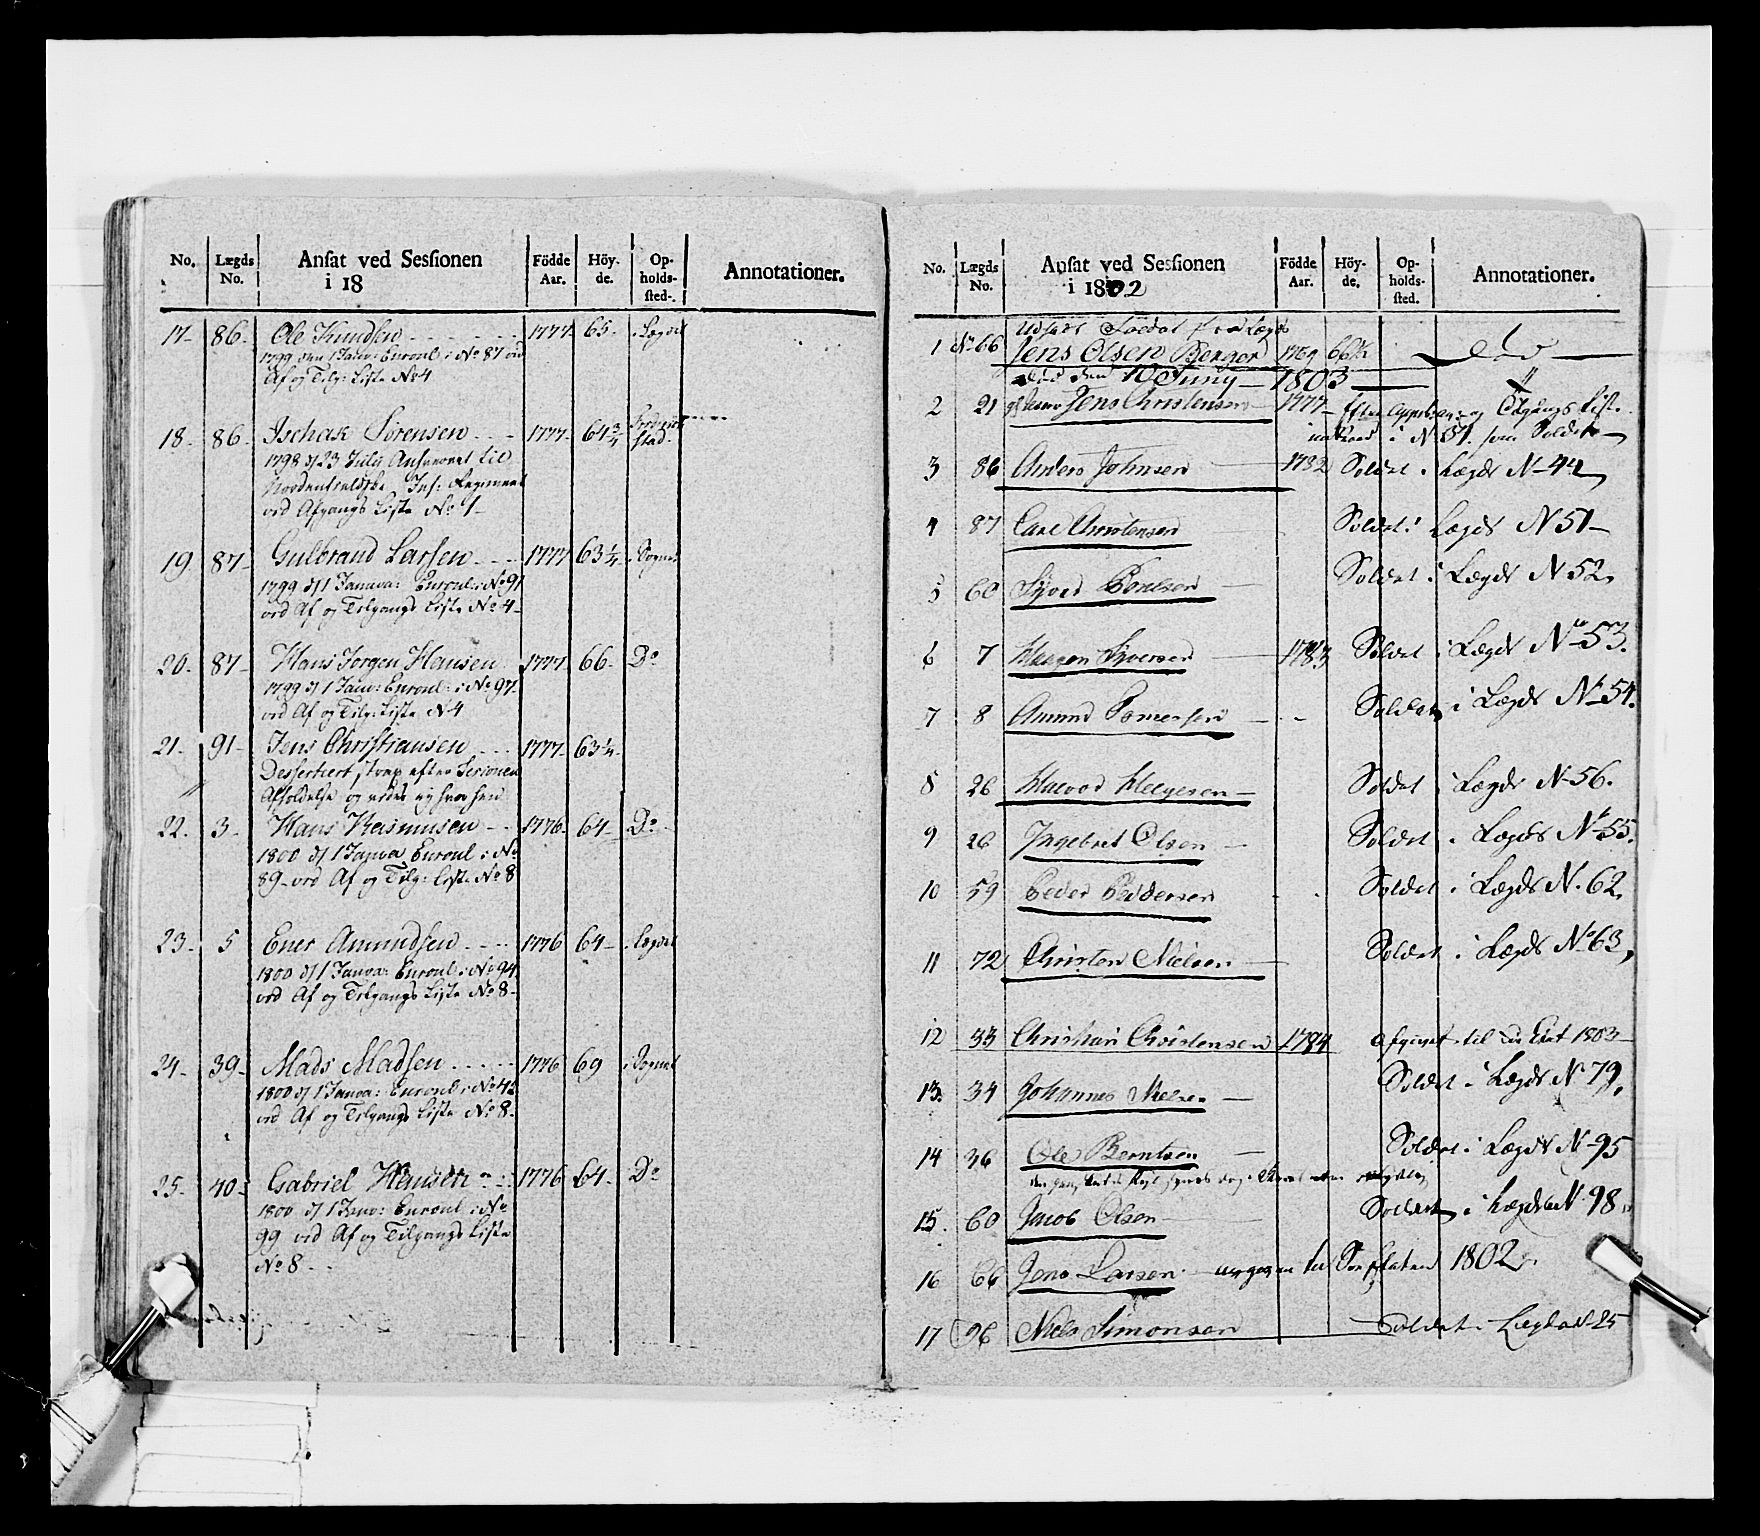 No. Lægds No. Ansat ved Sessionen i 18 Födde Aar. Höyde. Opholdssted. Annotationer.
17 86 Ole Knudsen 1777 65 i Sognet
1799 den 1 Janv: Enroul: i No 87 ved
Af og Tilg: Liste No 4
18 86 Ischak Sörensen 1777 64 3/4
1798 d/ 23 July Ansat til
Nordenfieldske Inf: Regiment
ved Afgangs Liste No 1
19 87 Gulbrand Larsen 1777 63 1/4 i Sognet
1799 d/ 1 Janva: Enroul: i No 91
ved Af og Tilgangs Liste No 4
20 87 Hans Jorgen Hansen 1777 66 Do
1799 d/ 1 Janv: Enroul: i No 97
ved Af og Tilg: Liste N 4
21 91 Jens Christiansen 1777 63 1/4
Dessertiert strax efter Sessionen
Afholdelse og vides ey hvor hen
22 3 Hans Rasmusen 1776 64 Do
1800 d/ 1 Janva Enroul i No
89 ved Af og Tilg: Liste No 8
23 5 Ener Amundsen 1776 64 i Sognet
1800 d/ 1 Janva: Enroul: i No 94
ved Af og Tilgangs Liste No 8
24 39 Mads Madsen 1776 69 i Sognet
1800 d/ 1 Janva: Enroul: i No 42
ved Af og Tilgangs Liste No 8
25 40 Gabriel Hansen 1776 64 Do
1800 d/ 1 Janv: Enroul: i No
99 ved Af og Tilgangs Liste
No 8
No. Lægds No. Ansat ved Sessionen i 1802 Födde Aar. Höyde. Opholdssted. Annotationer.
Udsat Soldat fra Lægd
1 No 66 Jens Olsen Berger 1769 66 1/2
Död den 10 Juny 1803
2 21 Jens Christensen 1777 Efter Approb: og Afgangs Liste
indtraad i N 51 som Soldat
3 86 Anders Johnsen 1782 Soldat i Lægd N 44
4 87 Carl Christensen Soldat i Lægd N 51
5 60 Syver Poulsen Soldat i Lægd N 52
6 7 Haagen Syversen 1783 Soldat i Lægd No 53
7 8 Amund Tomersen Soldat i Lægd N 54
8 26 Halvor Helgesen Soldat i Lægd N 56
9 26 Ingebret Olsen Soldat i Lægd No 55
10 59 Peder Peddersen Soldat i Lægd N 62
11 72 Christen Nielsen Soldat i Lægd No 63
12 33 Christian Christensen 1784 afgivet til Etat 1803
13 34 Johannes Nielsen Soldat i Lægd N 79
14 36 Ole Berntsen Soldat i Lægd N 95
15 60 Jacob Olsen Soldat i Lægd N 98
16 66 Jens Larsen til Söe Etaten 1802
17 96 Niels Simonsen Soldat i Lægd No 25